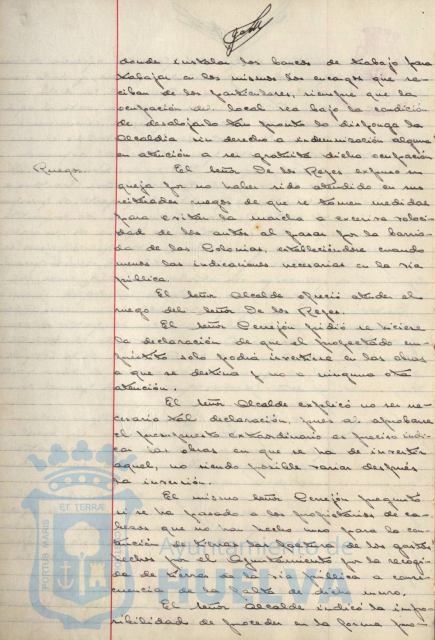 donde instalar los bancos de trabajo para
trabajar a los mismos los encargos que re-
ciban de los particulares, siempre que la
ocupación del local sea bajo la condición
de desalojarlo tan pronto lo disponga la
Alcaldía sin derecho a indemnización alguna
en atención a ser gratuita dicha ocupación
Ruegos
El señor De los Reyes expuso su
queja por no haber sido atendido en sus
reiterados ruegos de que se tomen medidas
para evitar la marcha a excesiva veloci-
dad de los autos al pasar por la barria-
da de las Colonias, estableciéndose cuando
menos las indicaciones necesarias en la vía
pública.
El señor Alcalde ofreció atender el
ruego del señor De los Reyes.
El señor Cerejón pidió se hiciera
la declaración de que el proyectado em-
préstito solo podía invertirse en las obras
a que se destina y no a ninguna otra
atención.
El señor Alcalde explicó no ser ne-
cesario tal declaración, pues al aprobarse
el presupuesto extraordinario es preciso indi-
car las obras en que se ha de invertir
aquel, no siendo posible variar después
la inversión.
El mismo señor Cerejón preguntó
si se ha pasado a los propietarios de ca-
bezos que no han hecho muro para la con-
tención de tierras los gastos de los
hechos por el Ayuntamiento por la recogi-
da de tierras en la vía pública a conse-
cuencia de la falta de dicho muro.
El señor Alcalde indicó la impo-
sibilidad de proceder en la forma pro-
PORTUS MARIS
ET TERRÆ
Ayuntamiento de
HUELVA